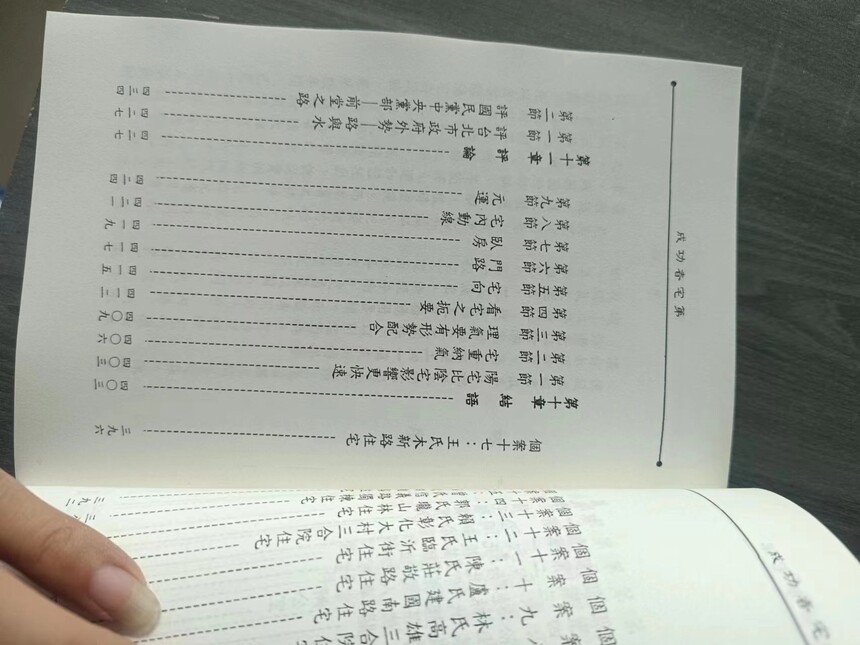 成功者宅
個案八：林氏高雄三合院
個案九：盧氏建國南路住宅
個案十：陳氏莊敬路住宅
個案十一：王氏臨沂街住宅
個案十二：賴氏彰化大村三合院住宅
個案十三：郭氏龍山林住宅
三九二
成功者宅第
個案十七：王氏木新路住宅 三九六
第十章 結語 四〇三
第一節 陽宅比陰宅影響更快速 四〇三
第二節 宅重納氣 四〇六
第三節 理氣要有形勢配合 四〇九
第四節 看宅之扼要 四一二
第五節 宅向 四一五
第六節 門路 四一七
第七節 臥房 四一九
第八節 宅內動線 四二一
第九節 元運 四二四
第十一章 評論 四二七
第一節 評台北市政府外勢—路與水 四二七
第二節 評國民黨中央黨部—前堂之路 四三四